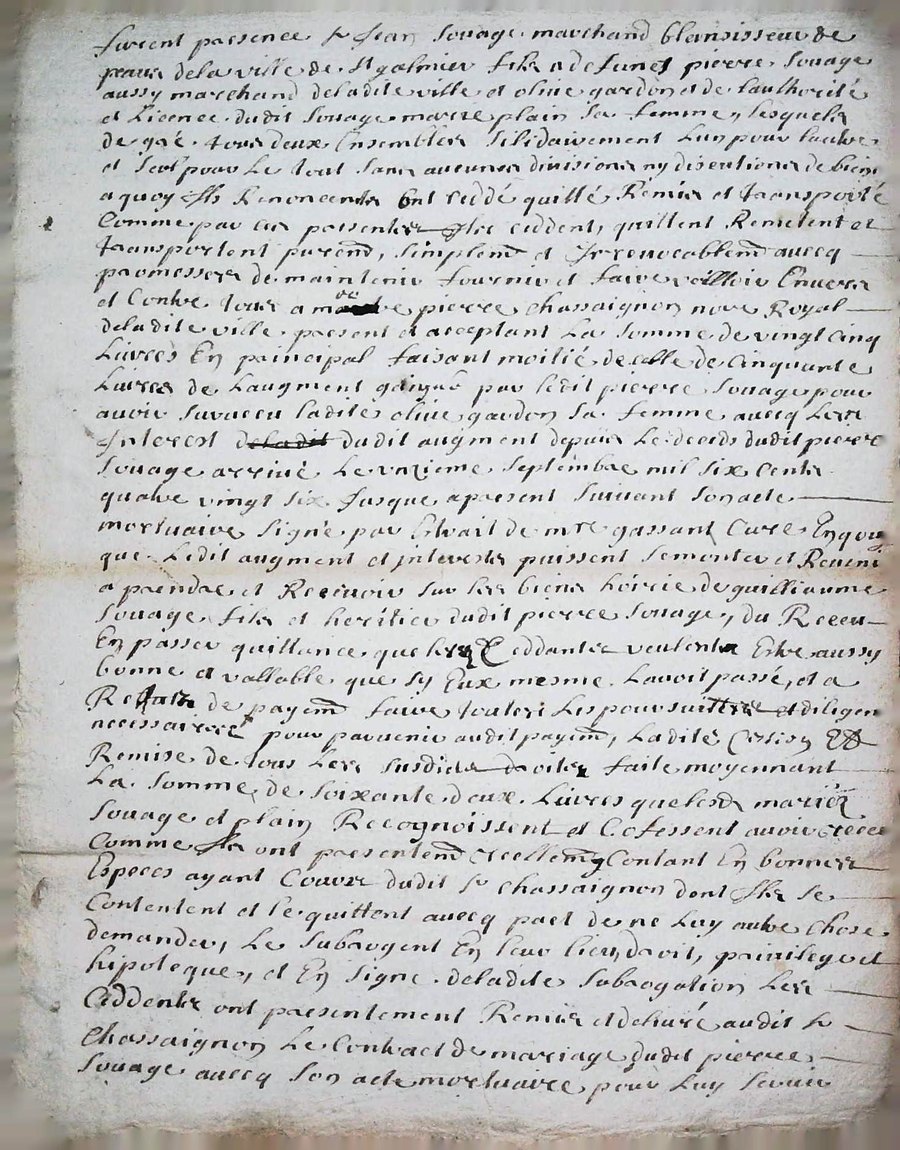 furent presence sr Jean Souage marchand blansisseur de
peaux dela ville de St galmier fils a defunct pierre Souage
aussy marchand deladite ville et olive gardon et de lauthorité
et Licence dudit Souage marie plain sa femme, lesquels
de gré tous deux Ensembles Solidairement Lun pour lautre
et Seul pour Le tout sans aucunes divisions ny discutions de biens
a quoy Ils Renoncents ont ceddé quitté Remis et transporté
Comme par ces presentes Ils ceddent, quittent Remetent et
transportent purem̄, simplem̄ et Irreuocablem̄ auecq
promesses de maintenir fournir et faire valloir Enuers
et Contre tous a me pierre chassaignon nore Royal
deladite ville present et acceptant La somme de vingt cinq
Liures En principal faisant moitié de celle de Cinquante
Liures de Laugment gaigné par ledit pierre Souage pour
auoir suruecu ladite olive gardon sa femme auecq Les
Interest deladit dudit augment depuis Le deceds dudit pierre
Souage arriué Le unzieme septembre mil six Cents
quatre vingt six Jusque apresent suiuant son acte
mortuaire signé par Extrait de mre gassant Curé En quoy
que Ledit augment et interests puissent se monter et Reueni
a prendre et Receuoir sur les biens hoirie de guilliaume
Souage fils et heritier dudit pierre Souage, du Receu
En passer quittance que les Ceddants veulent Estre aussy
bonne et vallable que sy Eux mesme Lauoit passé, et a
de payem̄ faire toutes Les poursuittes et diligen
necessaires pour paruenir audit payem̄, Ladite Cession Et
Remise de tous Les susdits droits faite moyennant
La somme de soixante deux Liures que lesd mariés
Souage et plain Recognoissent et Cofessent auoir receu
Comme Ils ont presentem̄ reellem̄ Contant En bonnes
Especes ayant Cours dudit sr chassaignon dont Ils se
Contentent et le quittent auecq pact de ne Luy autre Chose
demander, Le subrogent En leur lieu droit, priuilege et
hipoteque, et En signe deladite subrogation Les
Ceddents ont presentement Remis et deliuré audit sr
Chassaignon Le Contract de mariage dudit pierre
Souage auecq son acte mortuaire pour Luy seruir